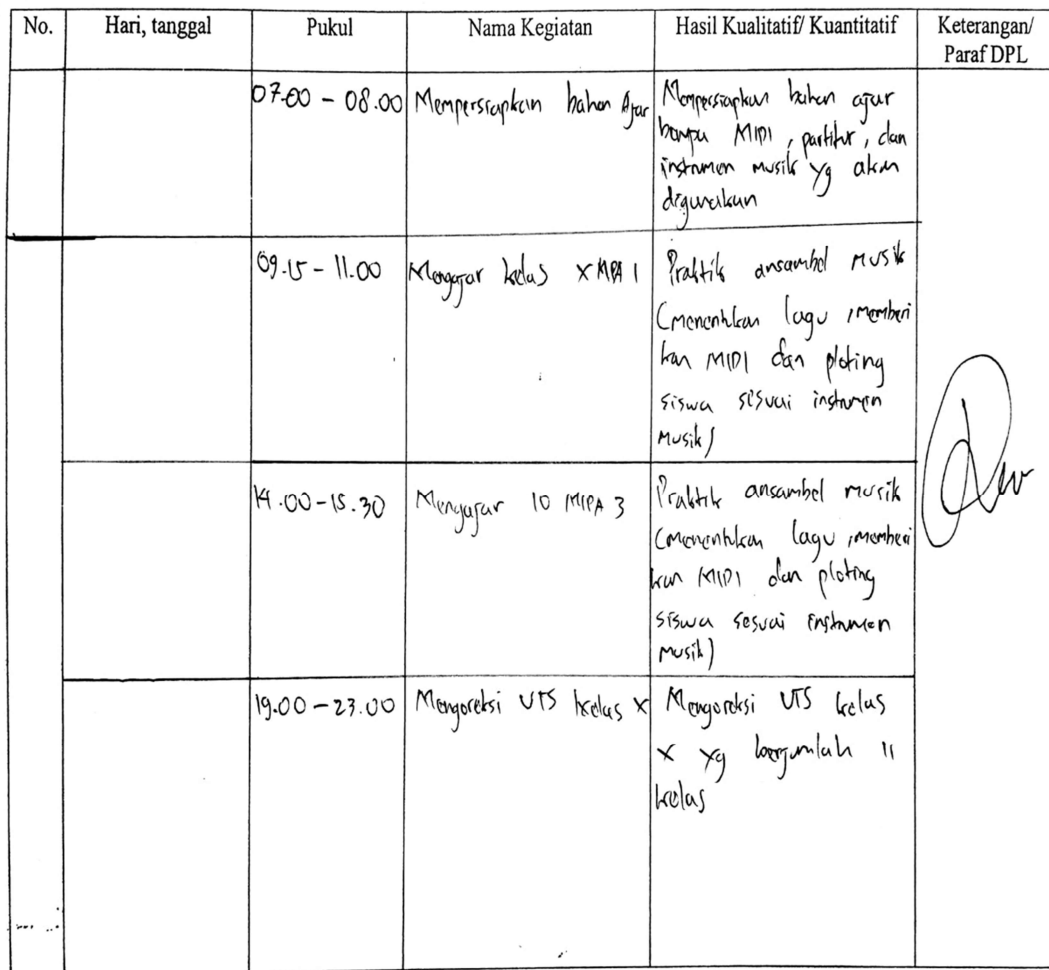 No. Hari, tanggal Pukul Nama Kegiatan Hasil Kualitatif/ Kuantitatif Keterangan/
Paraf DPL
07.00 - 08.00 Mempersiapkan bahan Ajar Mempersiapkan bahan ajar
berupa MIDI, partitur, dan
instrumen musik yg akan
digunakan
09.15 - 11.00 Mengajar kelas X MIPA 1 Praktik ansambel musik
(menentukan lagu, memberi
kan MIDI dan ploting
siswa sesuai instrumen
musik)
14.00 - 15.30 Mengajar 10 MIPA 3 Praktik ansambel musik
(menentukan lagu, memberi
kan MIDI dan ploting
siswa sesuai instrumen
musik)
19.00 - 23.00 Mengoreksi UTS kelas X Mengoreksi UTS kelas
X yg berjumlah 11
kelas